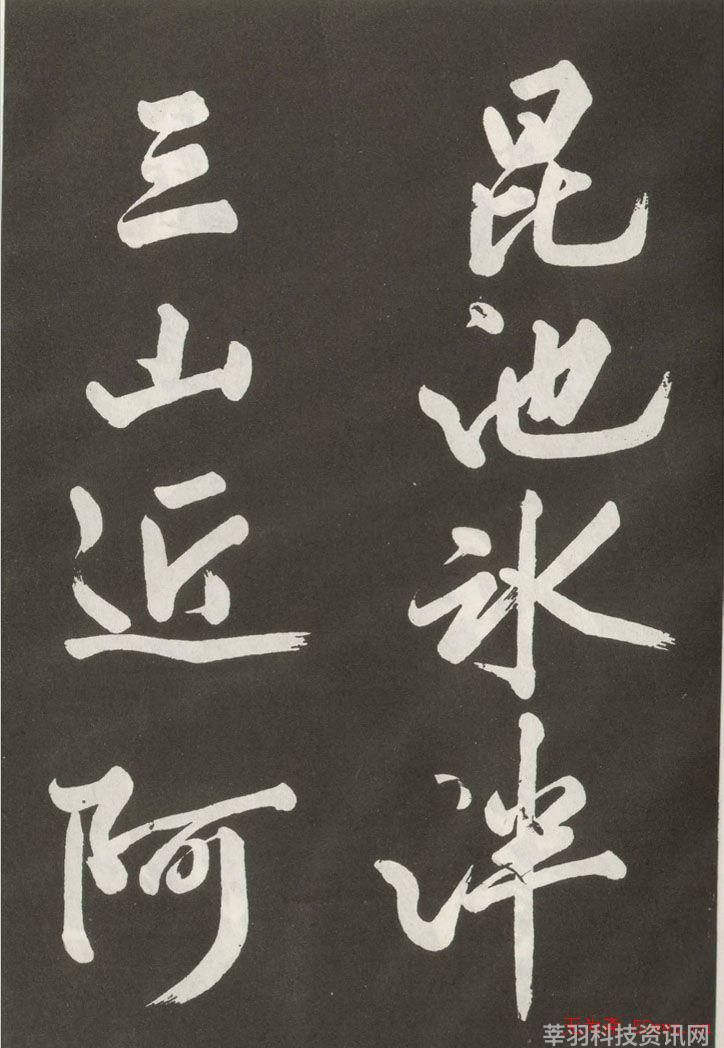 昆池氷泮
三山近阿
莘羽科技资讯网